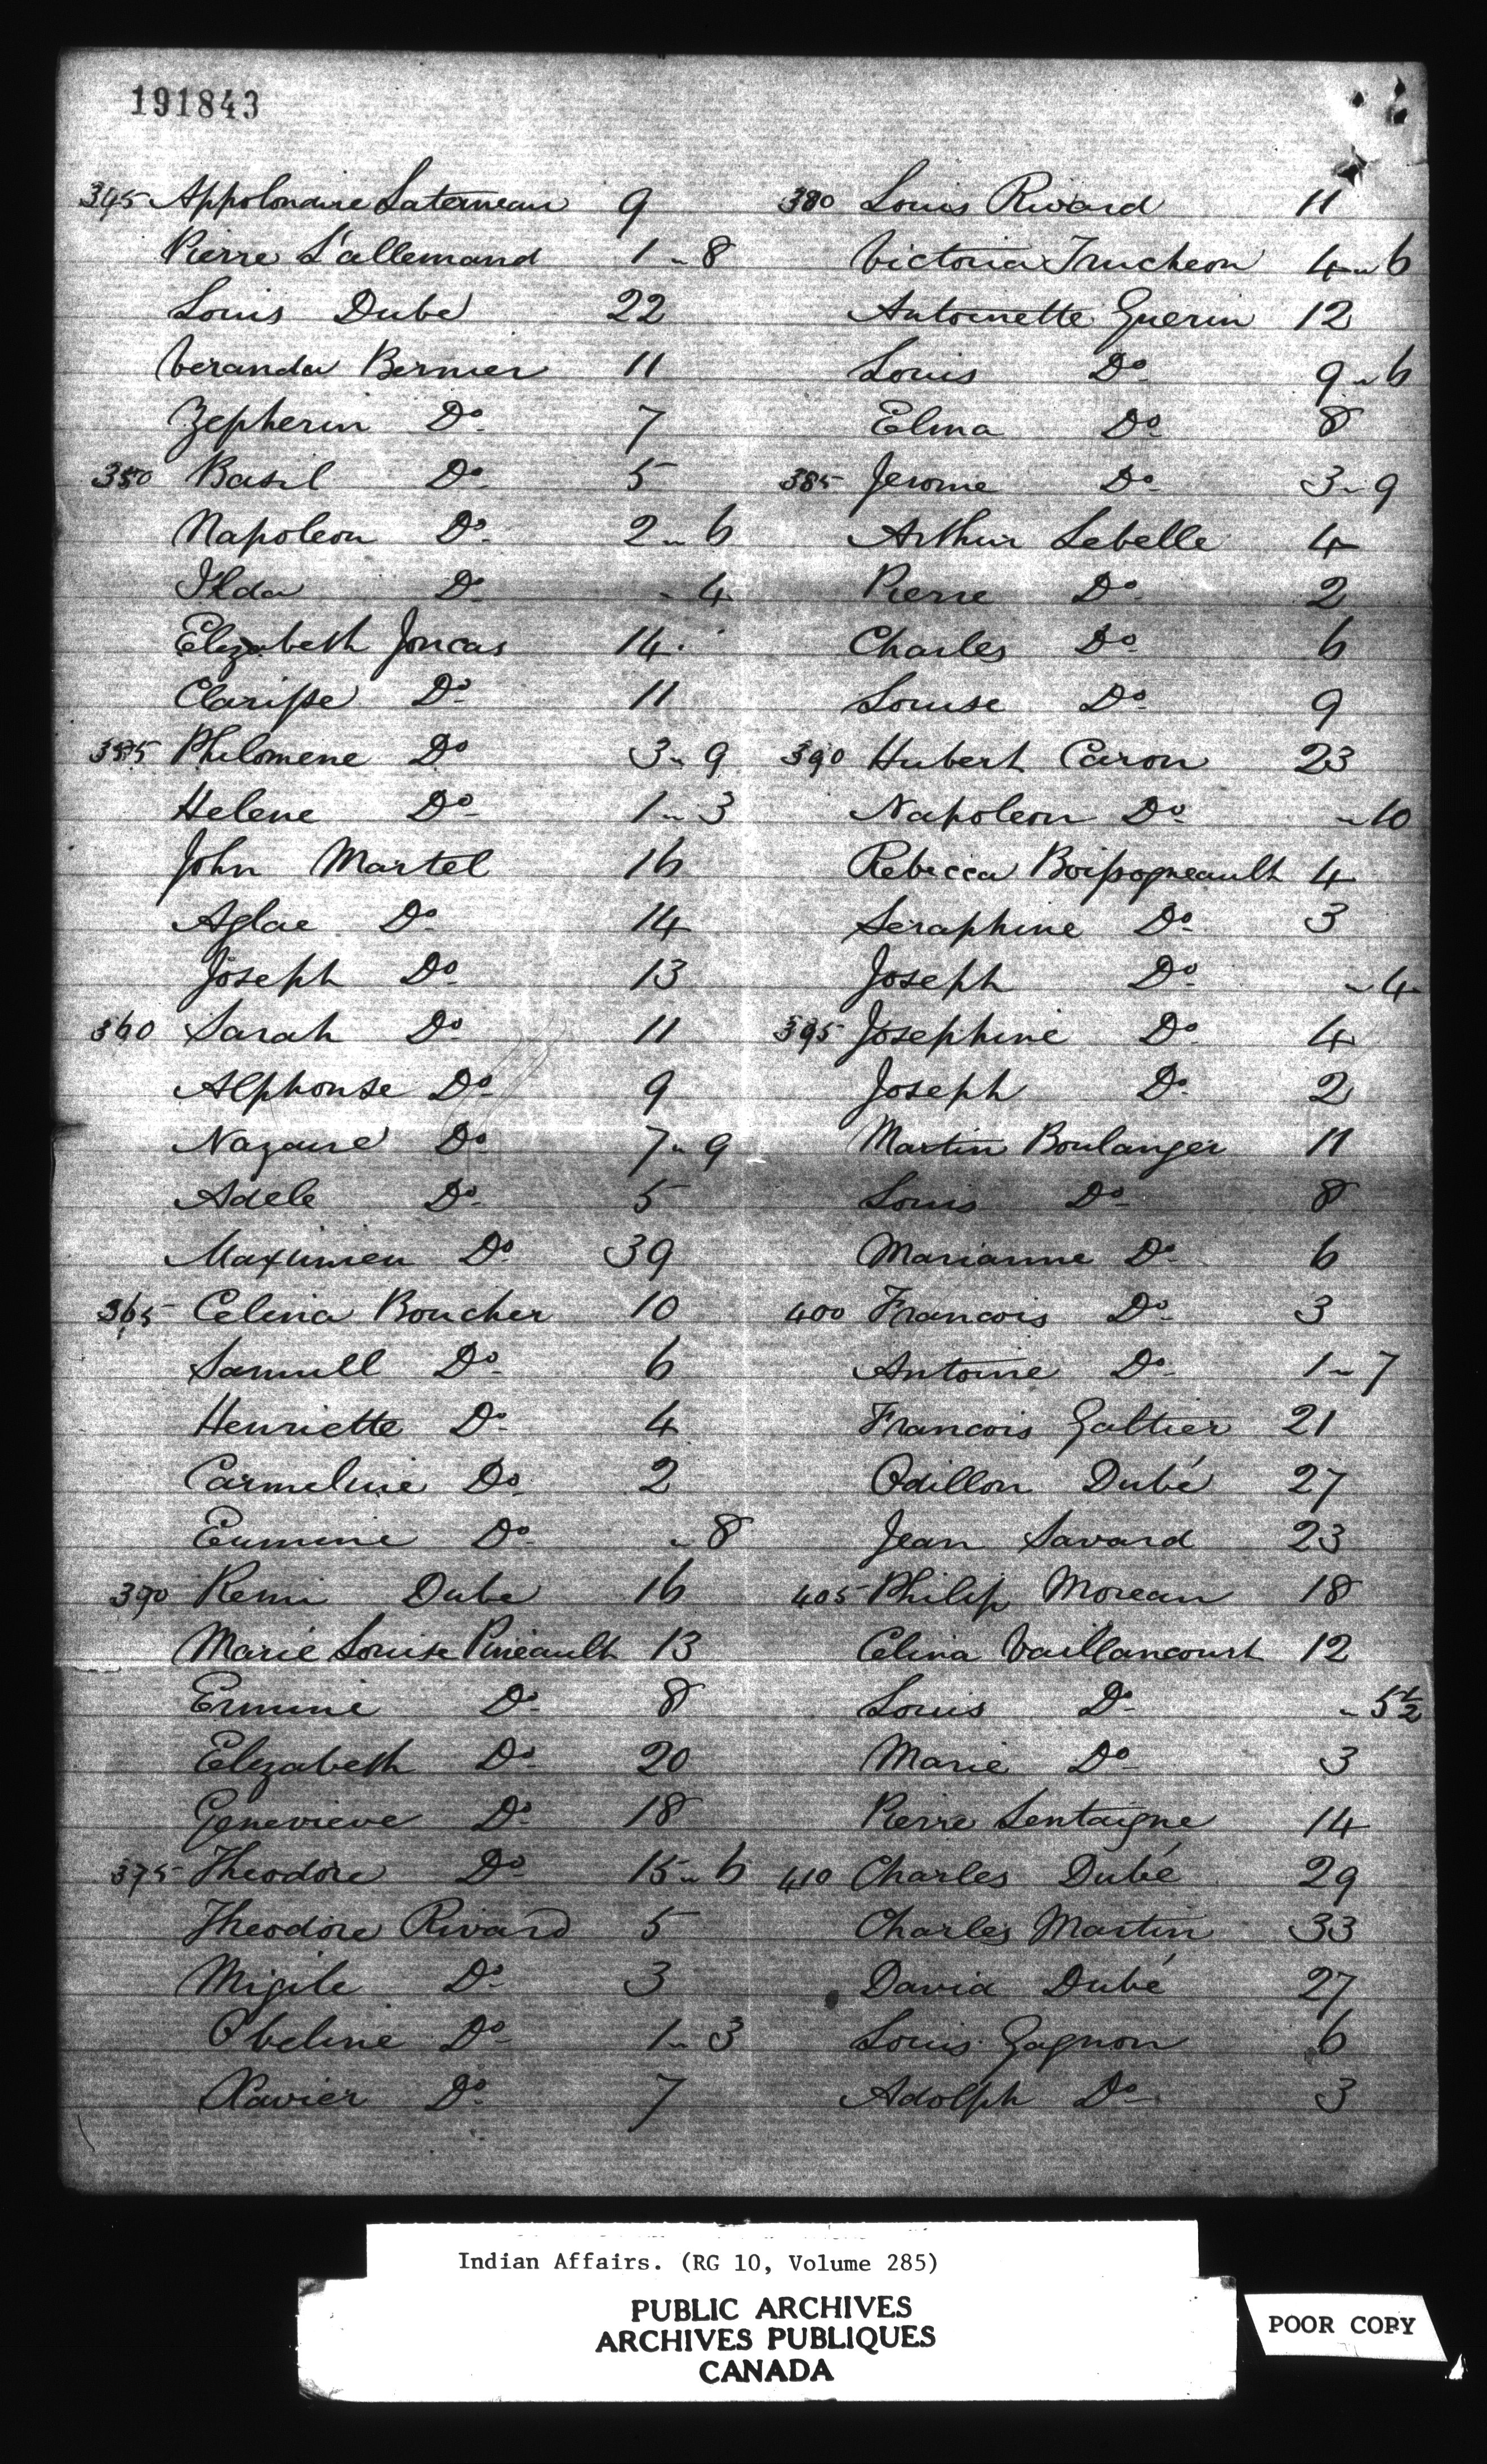 191843
345 Appolonaire Laterneau 9
Pierre L'allemand 1 " 8
Louis Dubé 22
Veranda Bernier 11
Zepherin Do 7
350 Basil Do 5
Napoleon Do 2 " 6
Ilda Do " 4
Elizabeth Joncas 14
Clarisse Do 11
355 Philomene Do 3 " 9
Helene Do 1 " 3
John Martel 16
Aglae Do 14
Joseph Do 13
360 Sarah Do 11
Alphonse Do 9
Nazaire Do 7 " 9
Adele Do 5
Maximien Do 39
365 Celina Boucher 10
Samuell Do 6
Henriette Do 4
Carmeline Do 2
Ermine Do " 8
370 Remi Dube 16
Marie Louise Pineault 13
Ermine Do 8
Elizabeth Do 20
Genevieve Do 18
375 Theodore Do 15 " 6
Theodore Rivard 5
Do 3
Obeline Do 1 " 3
Xavier Do 7
380 Louis Rivard 11
Victoria Trucheon 4 " 6
Antoinette Guerin 12
Louis Do 9 " 6
Elina Do 8
385 Jerome Do 3 " 9
Arthur Lebelle 4
Pierre Do 2
Charles Do 6
Louise Do 9
390 Hubert Caron 23
Napoleon Do " 10
Rebecca Boissogneault 4
Seraphine Do 3
Joseph Do " 4
395 Josephine Do 4
Joseph Do 2
Martin Boulanger 11
Louis Do 8
Marianne Do 6
400 Francois Do 3
Antoine Do 1 " 7
Francois Galtier 21
Odillon Dubé 27
Jean Savard 23
405 Philip Moreau 18
Celina Vaillancourt 12
Louis Do " 5½
Marie Do 3
Pierre Lentaigne 14
410 Charles Dubé 29
Charles Martin 33
David Dubé 27
Louis Gagnon 6
Adolph Do 3
Indian Affairs. (RG 10, Volume 285)
PUBLIC ARCHIVES
ARCHIVES PUBLIQUES
CANADA
POOR COPY